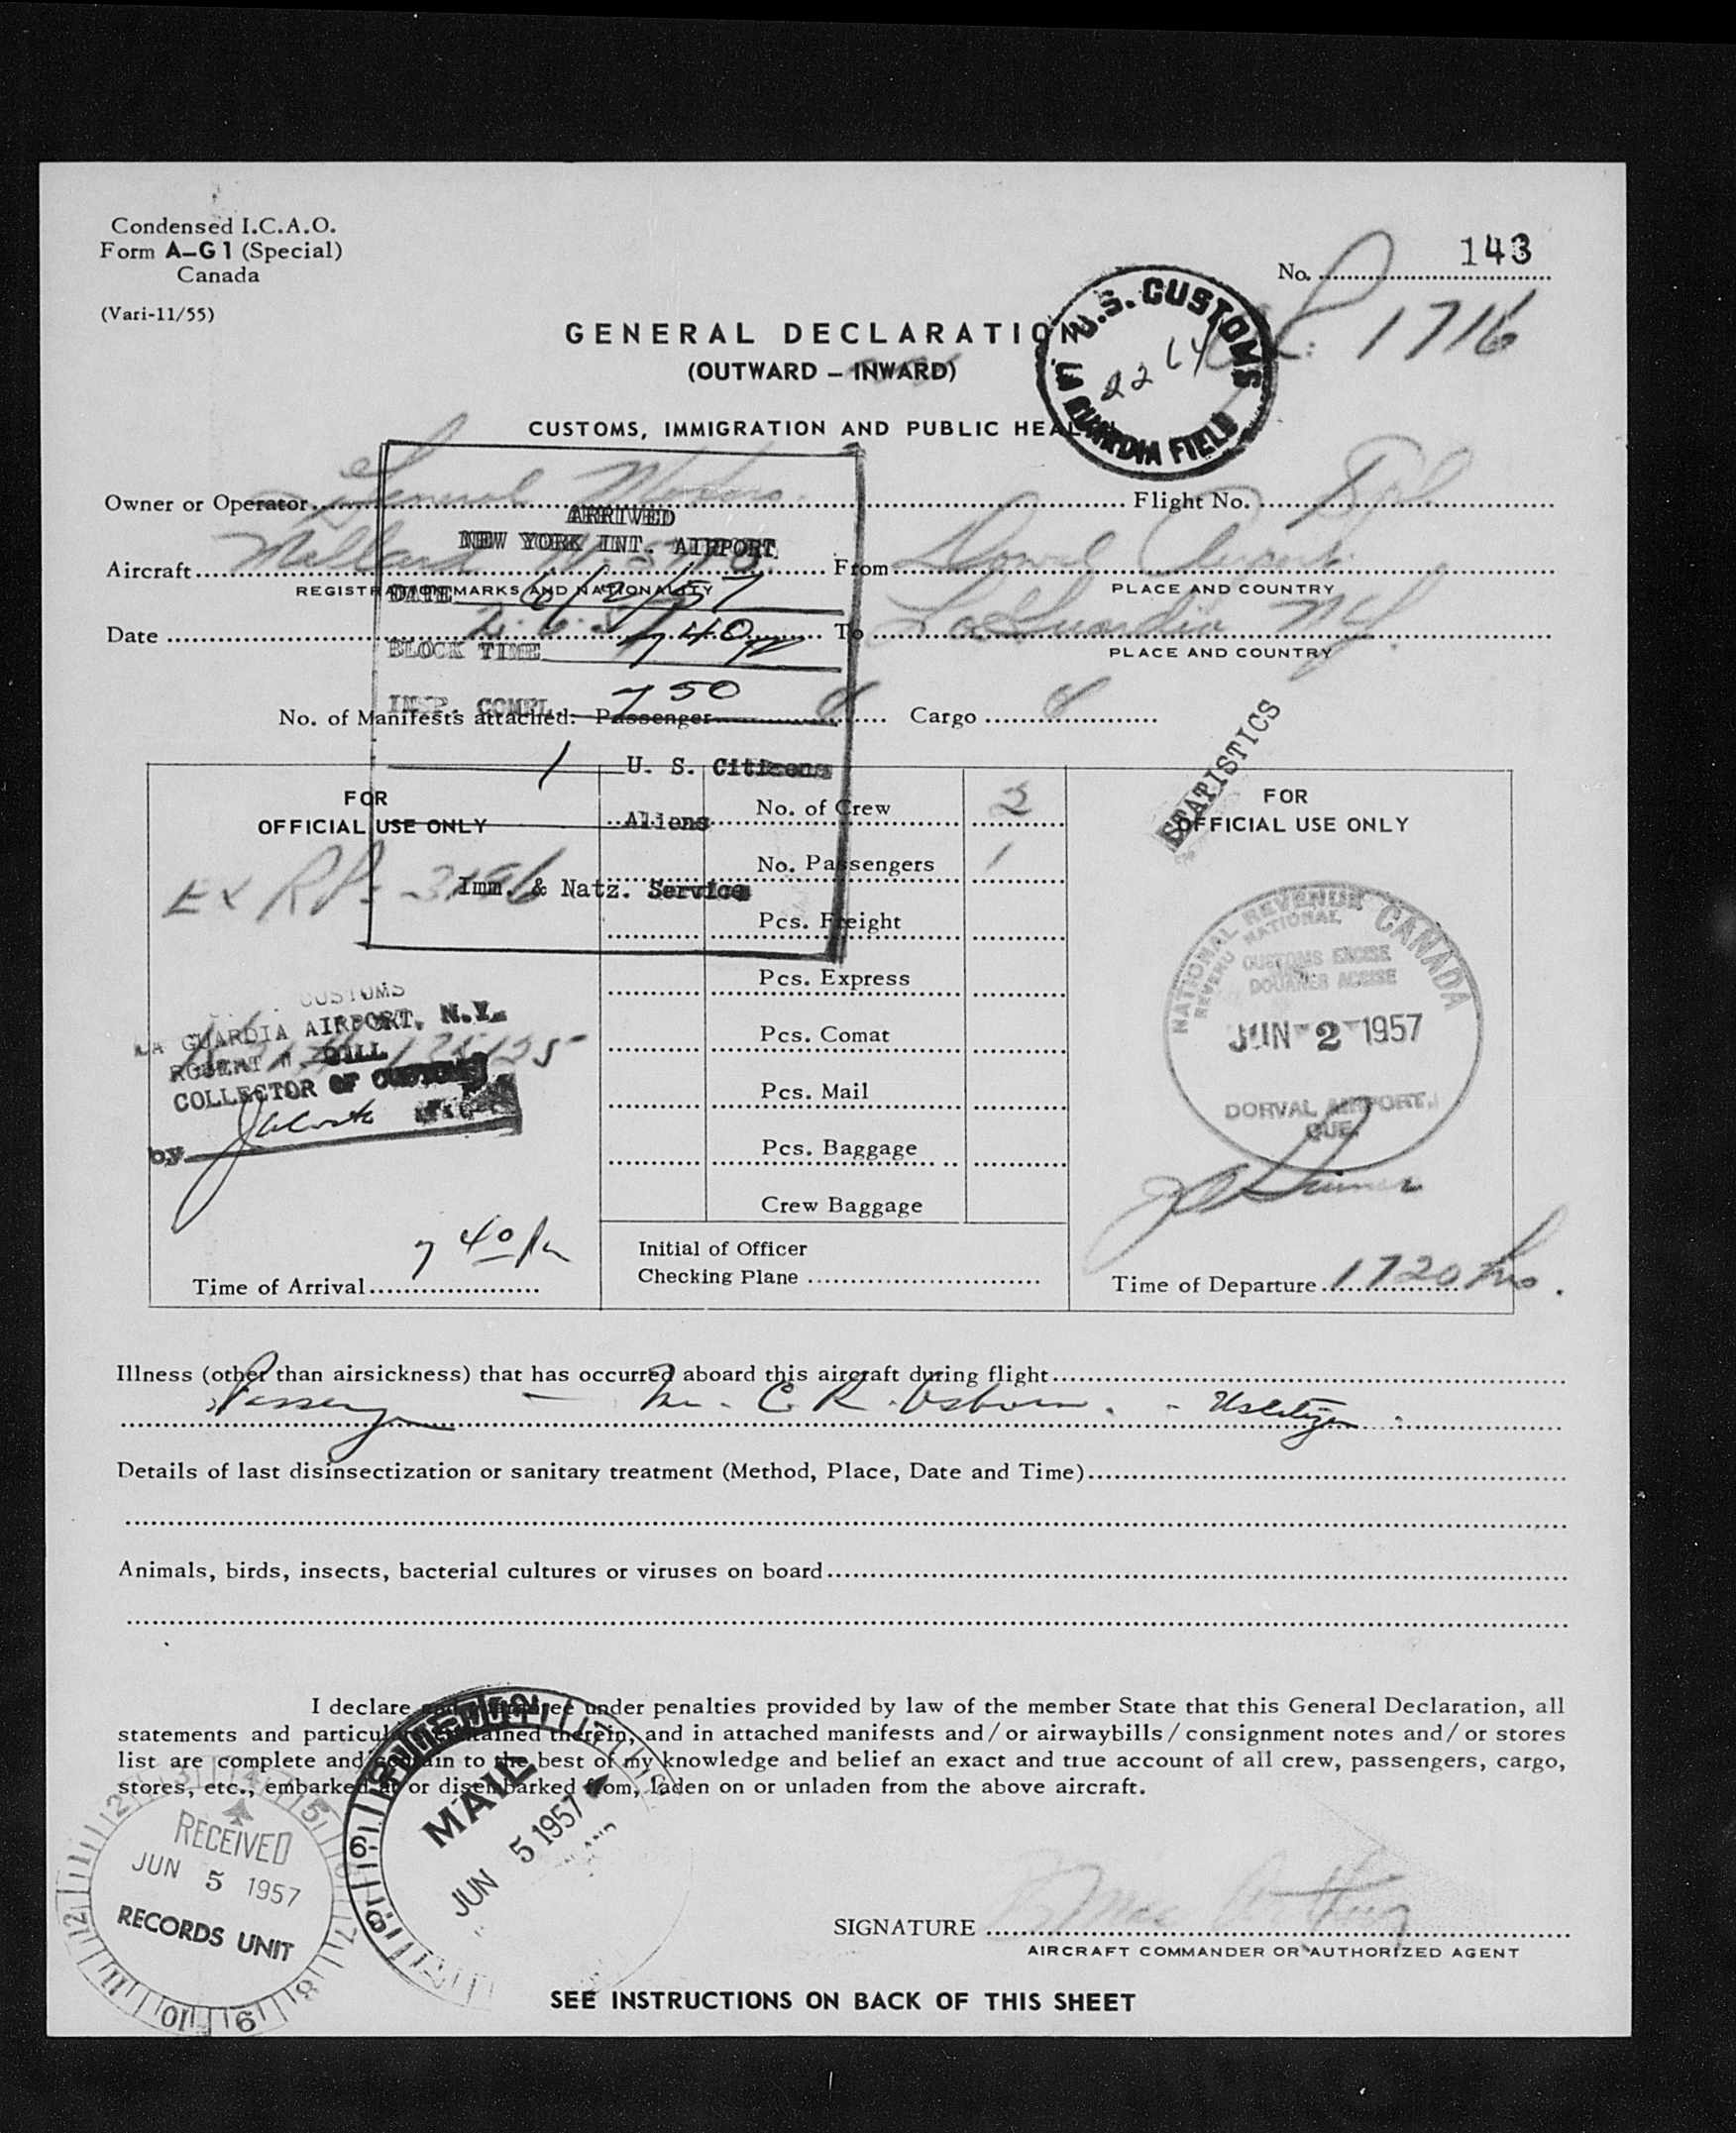 Condensed I.C.A.O.
Form A–G1 (Special)
Canada
(Vari-11/55)
No. 143
1716
GENERAL DECLARATION
(OUTWARD – INWARD)
U.S. CUSTOMS
LA GUARDIA FIELD
CUSTOMS, IMMIGRATION AND PUBLIC HEALTH
Owner or Operator General Motors
Flight No.
ARRIVED
NEW YORK INT. AIRPORT
Aircraft Mallard
From Dorval Airport
REGISTRATION MARKS AND NATIONALITY
PLACE AND COUNTRY
DATE 6/2/57
Date 2.6.57
To La Guardia NY.
PLACE AND COUNTRY
BLOCK TIME 740
INSP. COMPL. 750
No. of Manifests attached: Passenger
Cargo
STATISTICS
1 U. S. Citizens
Aliens
Imm. & Natz. Service
FOR
OFFICIAL USE ONLY
Ex RP.
No. of Crew 2
No. Passengers 1
Pcs. Freight
Pcs. Express
Pcs. Comat
Pcs. Mail
Pcs. Baggage
Crew Baggage
Initial of Officer
Checking Plane
FOR
OFFICIAL USE ONLY
NATIONAL REVENUE CANADA
REVENU NATIONAL
CUSTOMS EXCISE
DOUANES ACCISE
JUN - 2 1957
DORVAL AIRPORT,
QUE.
CUSTOMS
LA GUARDIA AIRPORT, N.Y.
ROBERT W. DILL
COLLECTOR OF CUSTOMS
by
Time of Arrival 7 40 Pm
Time of Departure 1720 hrs.
Illness (other than airsickness) that has occurred aboard this aircraft during flight
Passenger – Mr. C. R. Osborn. - US citizen
Details of last disinsectization or sanitary treatment (Method, Place, Date and Time)
Animals, birds, insects, bacterial cultures or viruses on board
I declare and guarantee under penalties provided by law of the member State that this General Declaration, all
statements and particulars contained therein, and in attached manifests and/or airwaybills/consignment notes and/or stores
list are complete and contain to the best of my knowledge and belief an exact and true account of all crew, passengers, cargo,
stores, etc., embarked at or disembarked from, laden on or unladen from the above aircraft.
RECEIVED
JUN 5 1957
RECORDS UNIT
MAIL
JUN 5 1957
SIGNATURE Mac Arthur
AIRCRAFT COMMANDER OR AUTHORIZED AGENT
SEE INSTRUCTIONS ON BACK OF THIS SHEET